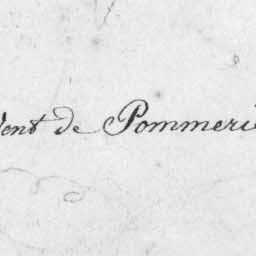 Vent de Pommeri